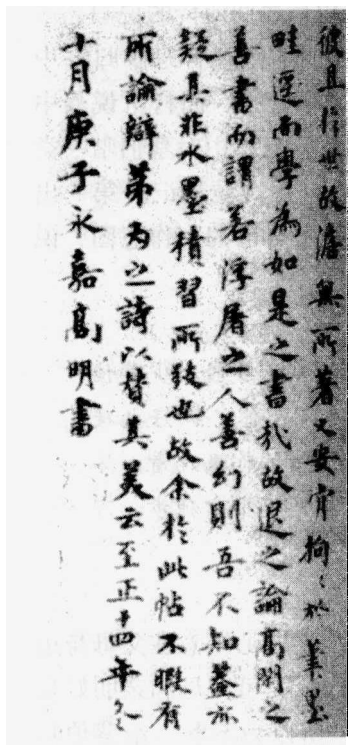 彼且於世故澹無所著又安肯拘〻於筆墨
畦逕而學為如是之書哉故退之論高閑之
善書而謂若浮屠之人善幻則吾不知蓋亦
疑其非水墨積習所致也故余於此帖不暇有
所論辯弟為之詩以贊其美云至正十四年冬
十月庚子永嘉高明書